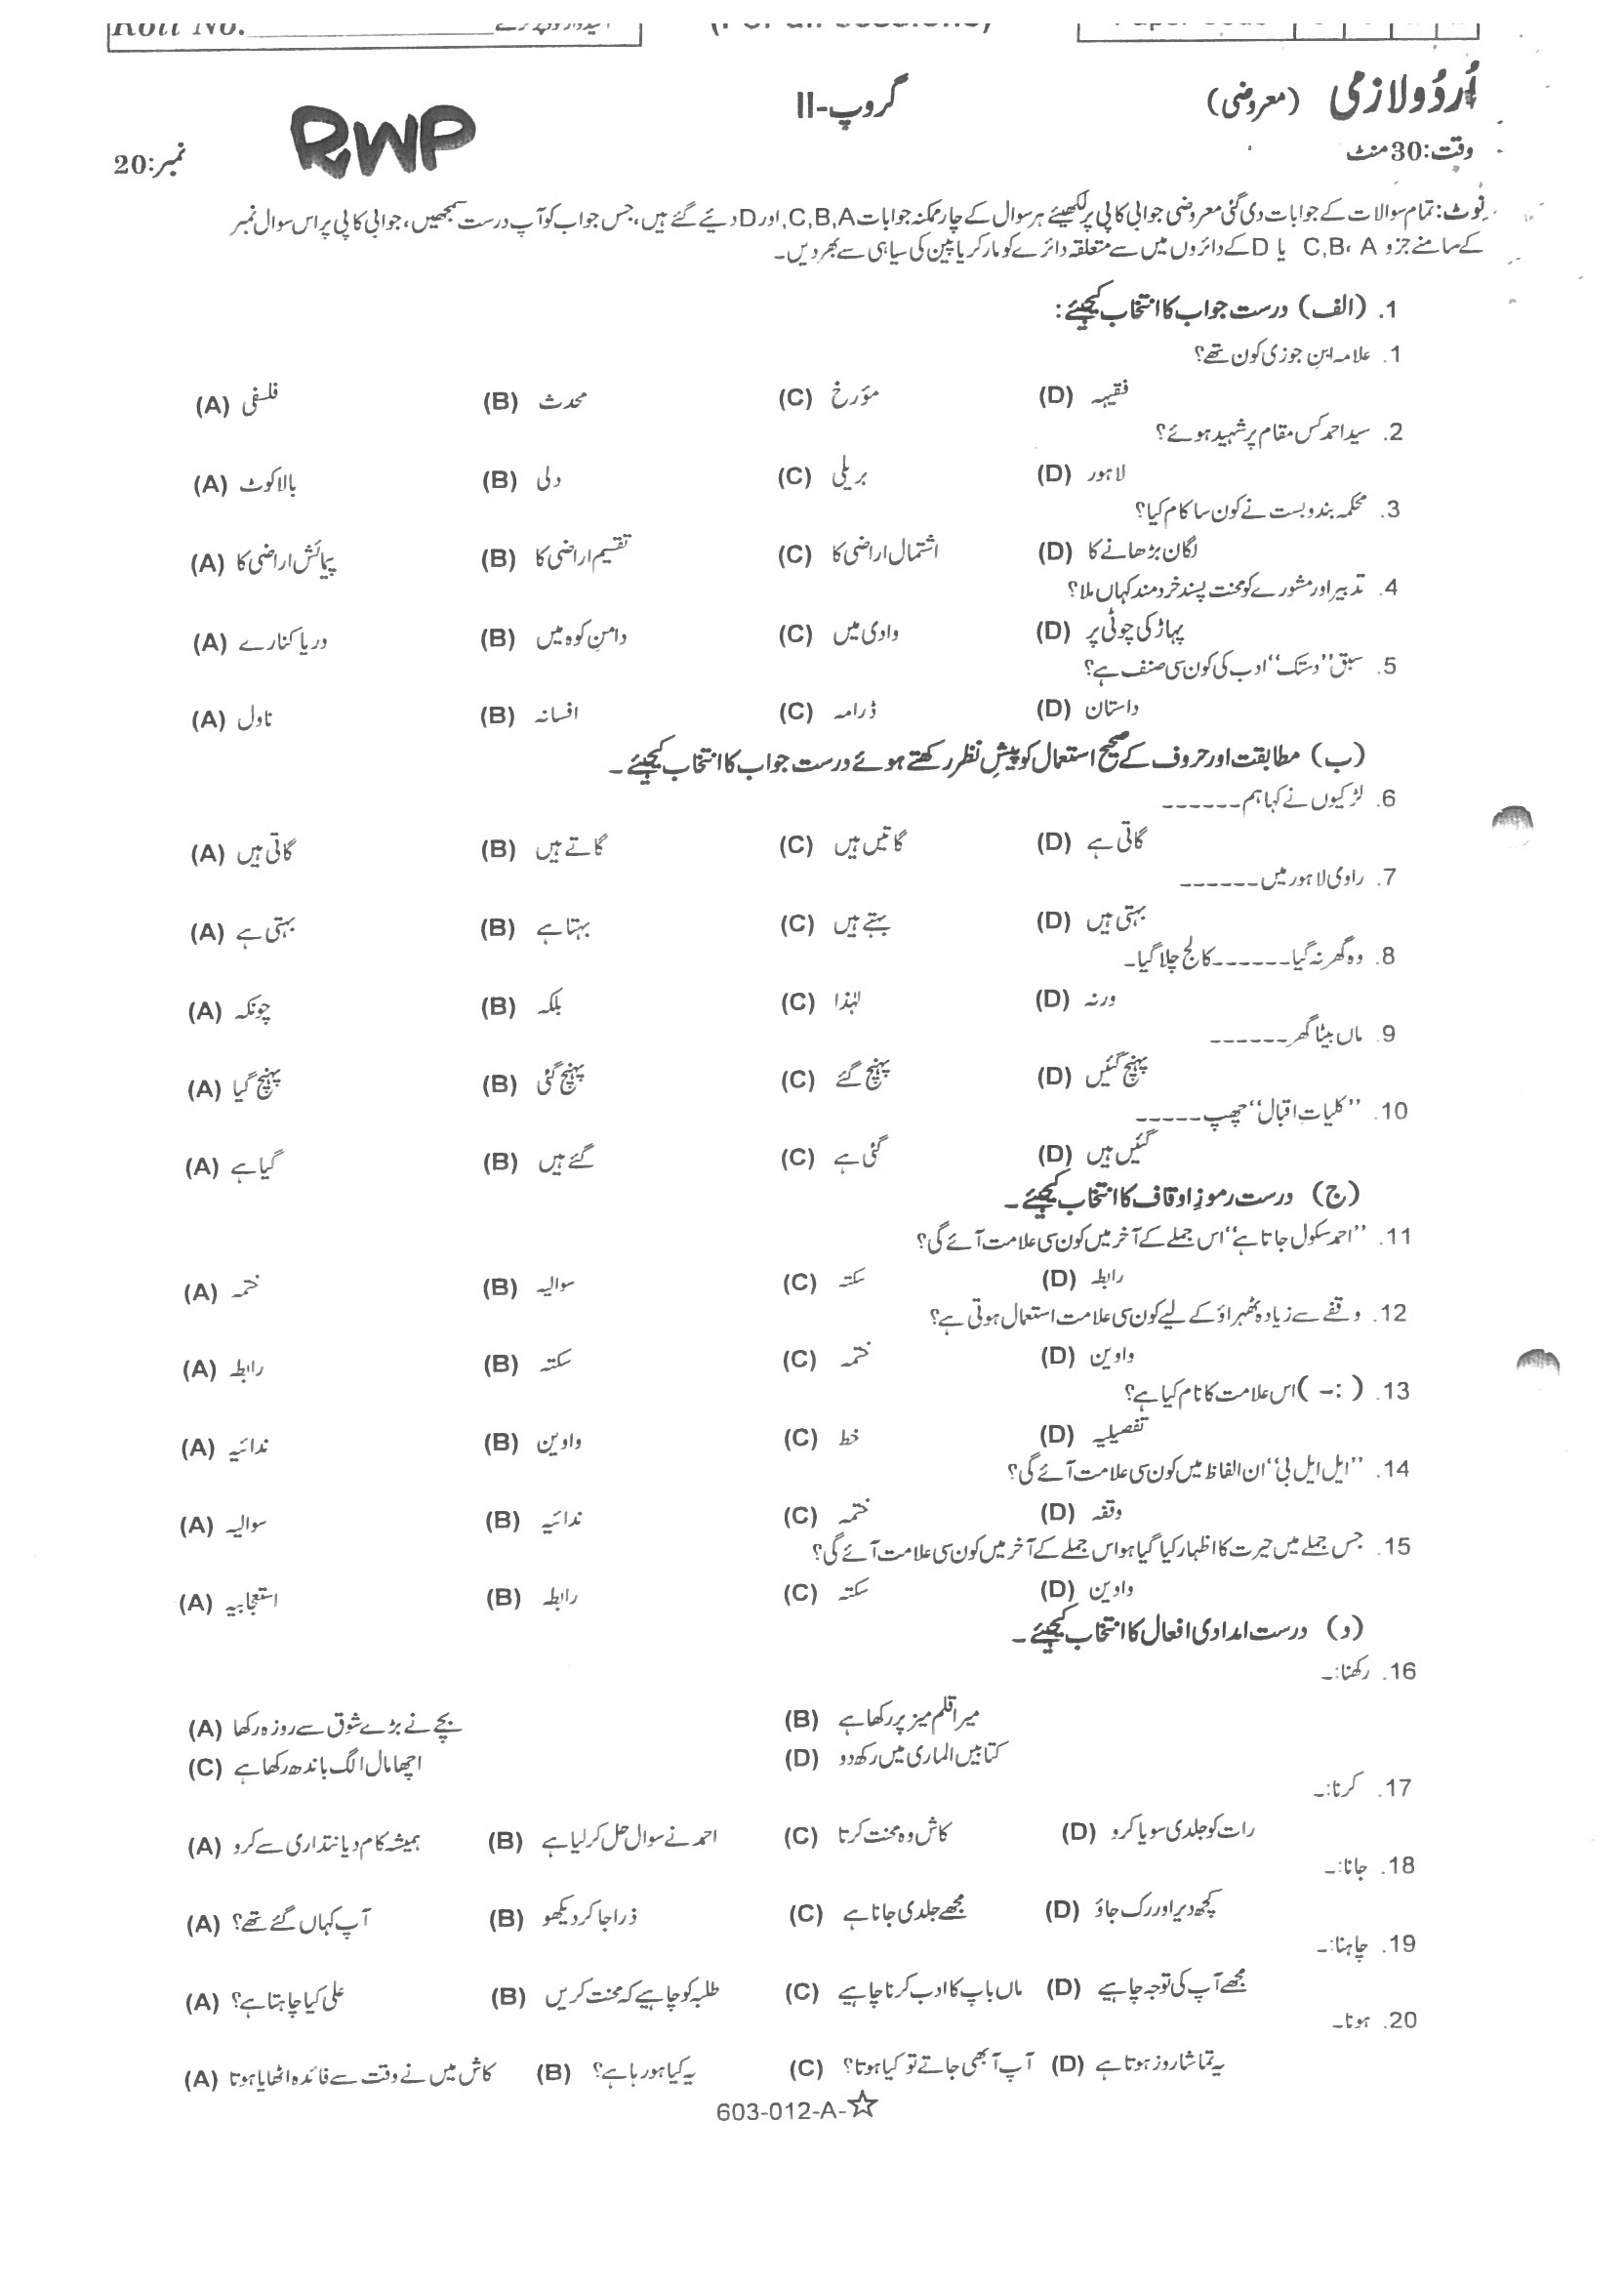 Roll No.
(For all sessions)
Paper Code
اُردُو لازمی (معروضی)
گروپ-II
RWP
وقت:30 منٹ
نمبر:20
نوٹ: تمام سوالات کے جوابات دی گئی معروضی جوابی کاپی پر لکھیئے ہر سوال کے چار ممکنہ جوابات C,B,A, اور D دیئے گئے ہیں، جس جواب کو آپ درست سمجھیں، جوابی کاپی پر اس سوال نمبر
کے سامنے جزو C,B، A یا D کے دائروں میں سے متعلقہ دائرے کو مارکر یا پین کی سیاہی سے بھر دیں۔
1. (الف) درست جواب کا انتخاب کیجیئے:
1. علامہ ابنِ جوزی کون تھے؟
(A) فلسفی (B) محدث (C) مؤرخ (D) فقیہہ
2. سید احمد کس مقام پر شہید ہوئے؟
(A) بالاکوٹ (B) دلی (C) بریلی (D) لاہور
3. محکمہ بندوبست نے کون سا کام کیا؟
(A) پیمائش اراضی کا (B) تقسیم اراضی کا (C) اشتمال اراضی کا (D) لگان بڑھانے کا
4. تدبیر اور مشورے کو محنت پسند خردمند کہاں ملا؟
(A) دریا کنارے (B) دامنِ کوہ میں (C) وادی میں (D) پہاڑ کی چوٹی پر
5. سبق ”دستک“ ادب کی کون سی صنف ہے؟
(A) ناول (B) افسانہ (C) ڈرامہ (D) داستان
(ب) مطابقت اور حروف کے صحیح استعمال کو پیشِ نظر رکھتے ہوئے درست جواب کا انتخاب کیجیئے۔
6. لڑکیوں نے کہا ہم ------
(A) گاتی ہیں (B) گاتے ہیں (C) گاتیں ہیں (D) گاتی ہے
7. راوی لاہور میں ------
(A) بہتی ہے (B) بہتا ہے (C) بہتے ہیں (D) بہتی ہیں
8. وہ گھر نہ گیا ------ کالج چلا گیا۔
(A) چونکہ (B) بلکہ (C) لہٰذا (D) ورنہ
9. ماں بیٹا گھر ------
(A) پہنچ گیا (B) پہنچ گئی (C) پہنچ گئے (D) پہنچ گئیں
10. ”کلیاتِ اقبال“ چھپ -----
(A) گیا ہے (B) گئے ہیں (C) گئی ہے (D) گئیں ہیں
(ج) درست رموزِ اوقاف کا انتخاب کیجیئے۔
11. ”احمد سکول جاتا ہے“ اس جملے کے آخر میں کون سی علامت آئے گی؟
(A) ختمہ (B) سوالیہ (C) سکتہ (D) رابطہ
12. وقفے سے زیادہ ٹھہراؤ کے لیے کون سی علامت استعمال ہوتی ہے؟
(A) رابطہ (B) سکتہ (C) ختمہ (D) واوین
13. ( :- ) اس علامت کا نام کیا ہے؟
(A) ندائیہ (B) واوین (C) خط (D) تفصیلیہ
14. ”ایل ایل بی“ ان الفاظ میں کون سی علامت آئے گی؟
(A) سوالیہ (B) ندائیہ (C) ختمہ (D) وقفہ
15. جس جملے میں حیرت کا اظہار کیا گیا ہو اس جملے کے آخر میں کون سی علامت آئے گی؟
(A) استعجابیہ (B) رابطہ (C) سکتہ (D) واوین
(د) درست امدادی افعال کا انتخاب کیجیئے۔
16. رکھنا:۔
(A) بچے نے بڑے شوق سے روزہ رکھا (B) میرا قلم میز پر رکھا ہے
(C) اچھا مال الگ باندھ رکھا ہے (D) کتابیں الماری میں رکھ دو
17. کرنا:۔
(A) ہمیشہ کام دیانتداری سے کرو (B) احمد نے سوال حل کر لیا ہے (C) کاش وہ محنت کرتا (D) رات کو جلدی سویا کرو
18. جانا:۔
(A) آپ کہاں گئے تھے؟ (B) ذرا جا کر دیکھو (C) مجھے جلدی جانا ہے (D) کچھ دیر اور رک جاؤ
19. چاہنا:۔
(A) علی کیا چاہتا ہے؟ (B) طلبہ کو چاہیے کہ محنت کریں (C) ماں باپ کا ادب کرنا چاہیے (D) مجھے آپ کی توجہ چاہیے
20. ہونا۔
(A) کاش میں نے وقت سے فائدہ اٹھایا ہوتا (B) یہ کیا ہو رہا ہے؟ (C) آپ آ بھی جاتے تو کیا ہوتا؟ (D) یہ تماشا روز ہوتا ہے
603-012-A-☆